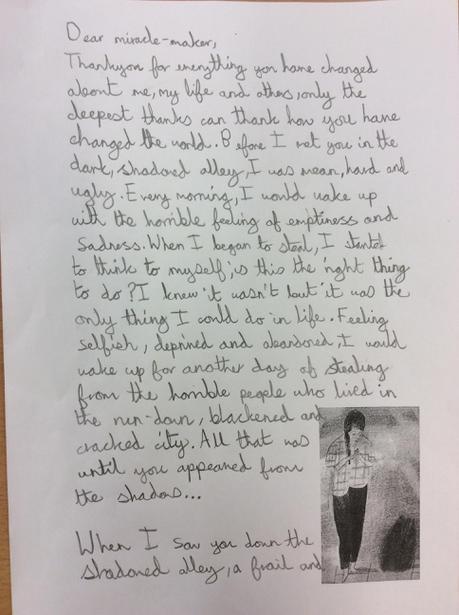 Dear miracle-maker,
Thankyou for everything you have changed
about me, my life and others, only the
deepest thanks can thank how you have
changed the world. Before I met you in the
dark, shadowed alley, I was mean, hard and
ugly. Every morning, I would wake up
with the horrible feeling of emptiness and
sadness. When I began to steal, I started
to think to myself; is this the right thing
to do? I knew it wasn't but it was the
only thing I could do in life. Feeling
selfish, deprived and abandoned, I would
wake up for another day of stealing
from the horrible people who lived in
the run-down, blackened and
cracked city. All that was
until you appeared from
the shadows...
When I saw you down the
shadowed alley, a frail and